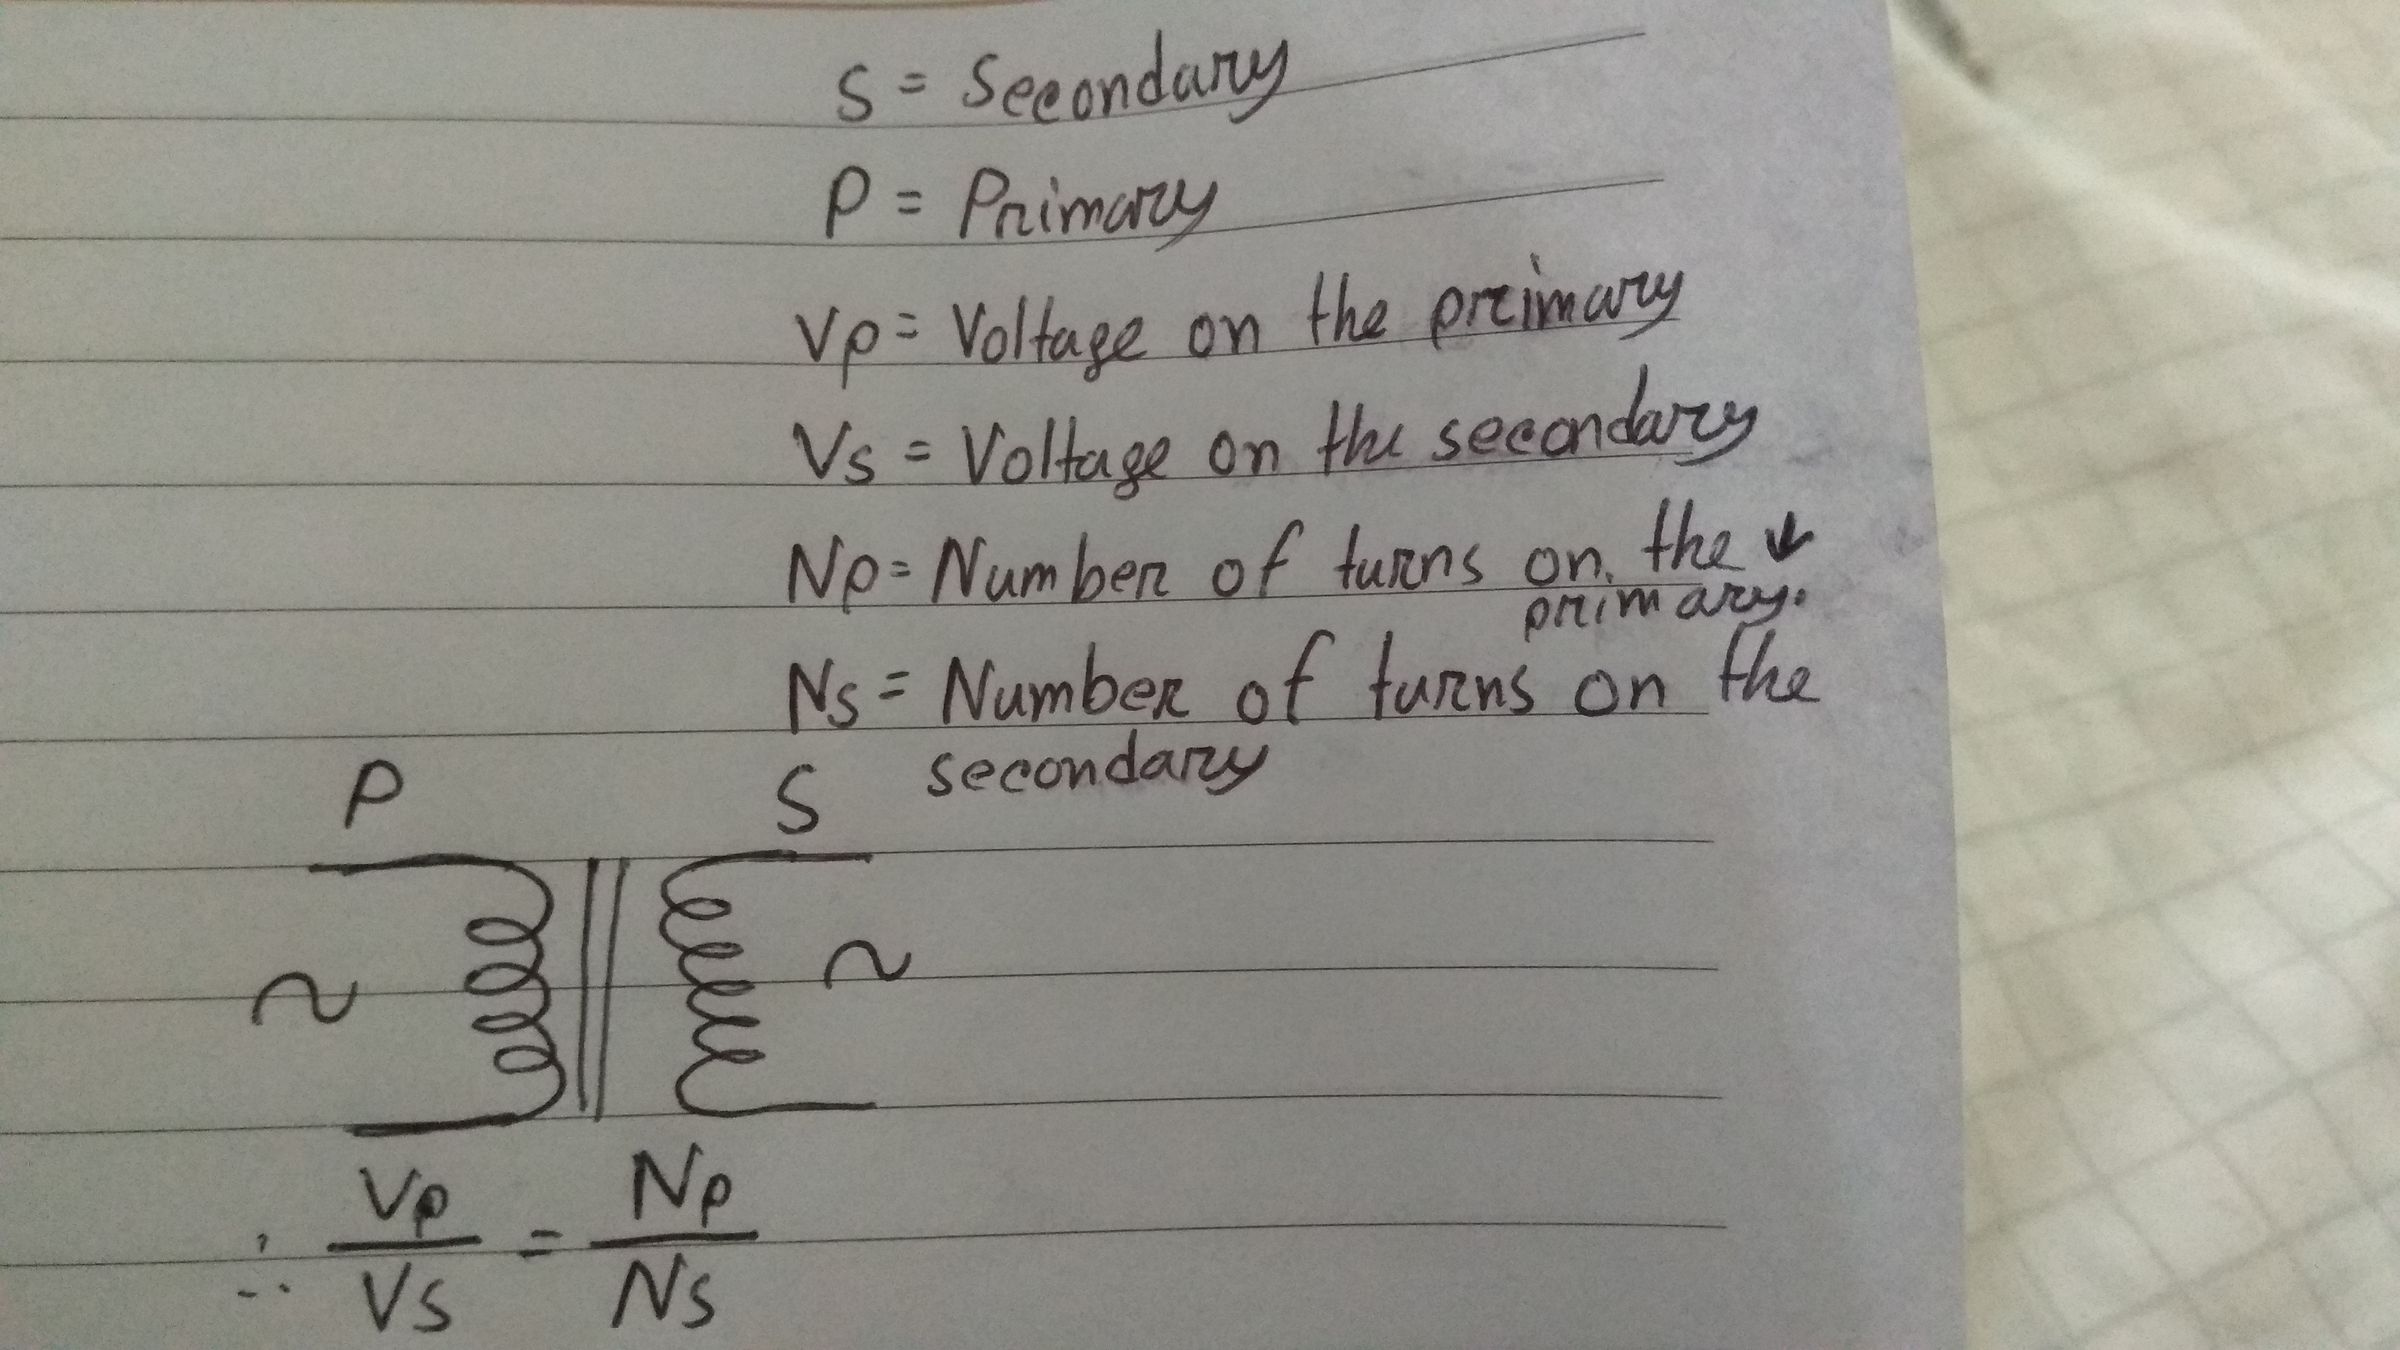 S = Secondary
P = Primary
Vp = Voltage on the primary
Vs = Voltage on the secondary
Np = Number of turns on the ↓
primary.
Ns = Number of turns on the
secondary
P S
~ ~
∴ Vp/Vs = Np/Ns